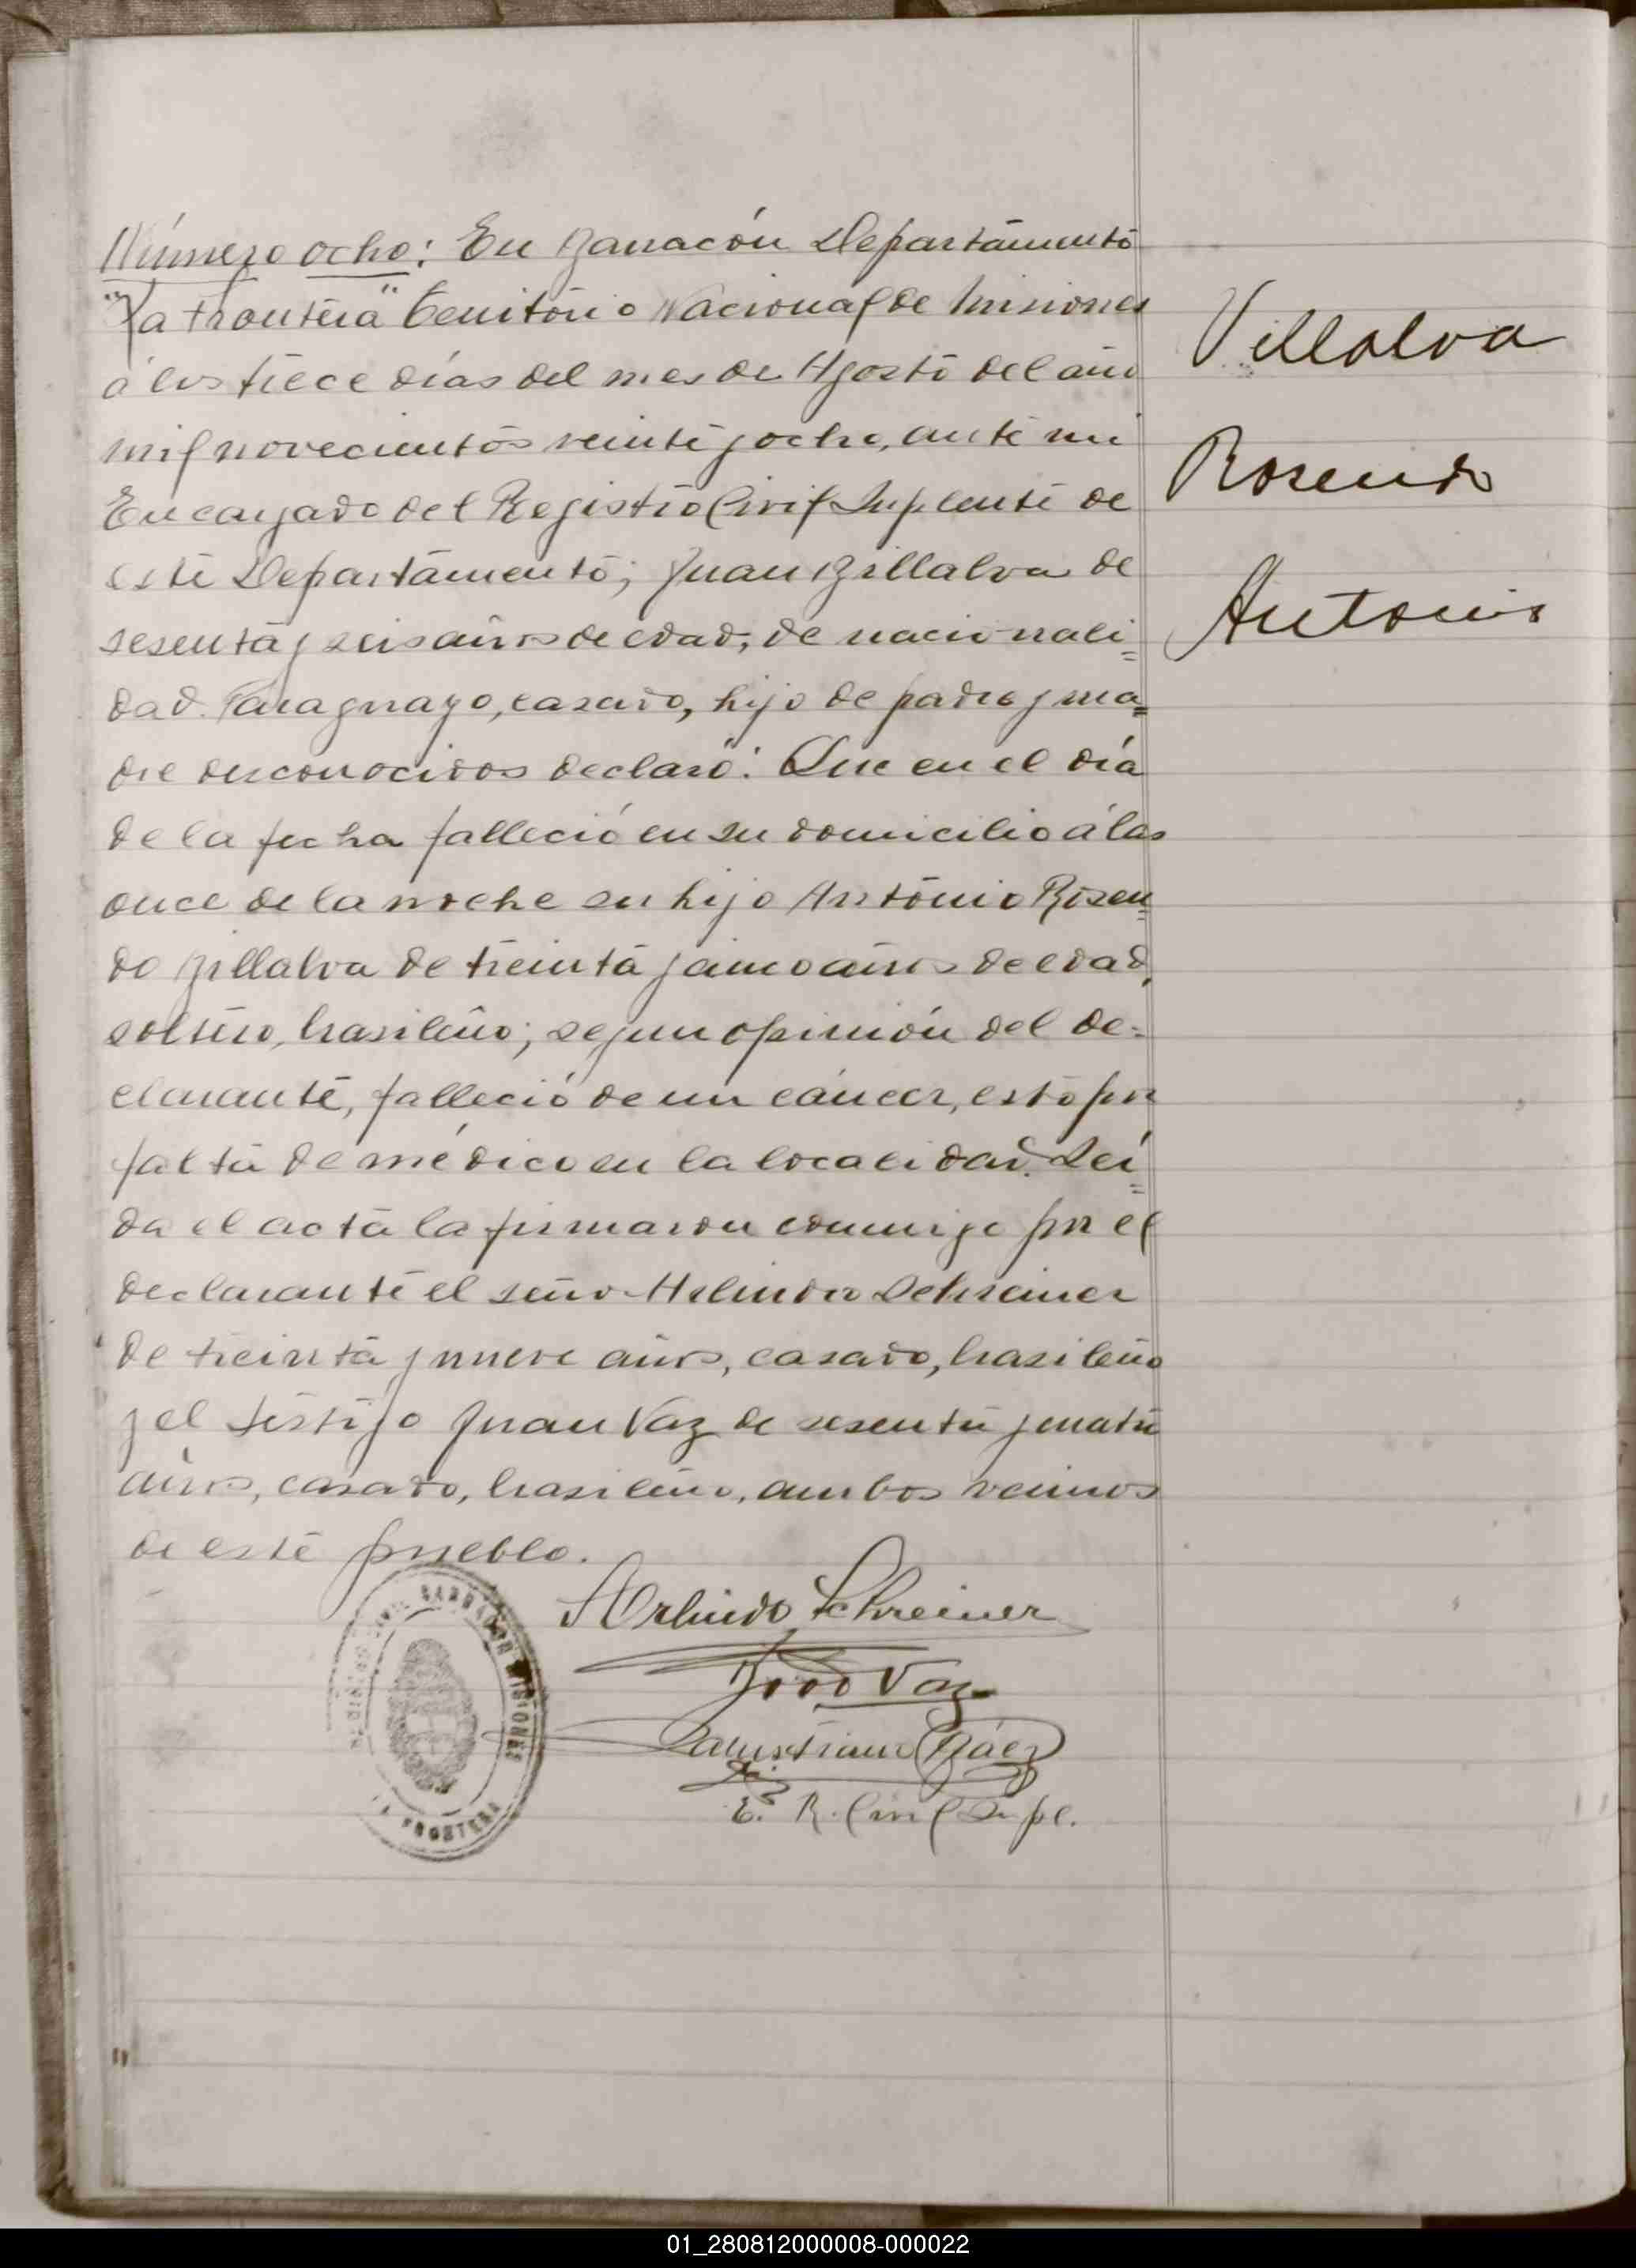 Número ocho: En Barracón Departamento
"La Frontera" Territorio Nacional de Misiones
á los trece días del mes de Agosto del año
mil novecientos veinte y ocho, ante mi
Encargado del Registro Civil Suplente de
este Departamento; Juan Billalva de
sesenta y seis años de edad, de nacionali=
dad Paraguayo, casado, hijo de padre y ma=
dre desconocidos declaró: Que en el día
de la fecha falleció en su domicilio á las
once de la noche su hijo Antonio Rosen=
do Billalva de treinta y cinco años de edad,
soltero, brasileño; segun opinión del de=
clarante, falleció de un cáncer, esto por
falta de médico en la localidad. Leí=
da el acta la firmaron conmigo por el
declarante el señor Arlindo Schreiner
de treinta y nueve años, casado, brasileño
y el testigo Juan Vaz de sesenta y cuatro
años, casado, brasileño, ambos vecinos
de este pueblo.
Villalva
Rosendo
Antonio
Arlindo Schreiner
João Vaz
Báez
E. R. Civil Supl.
CIVIL BARRACON MISIONES
LA FRONTERA
01_280812000008-000022